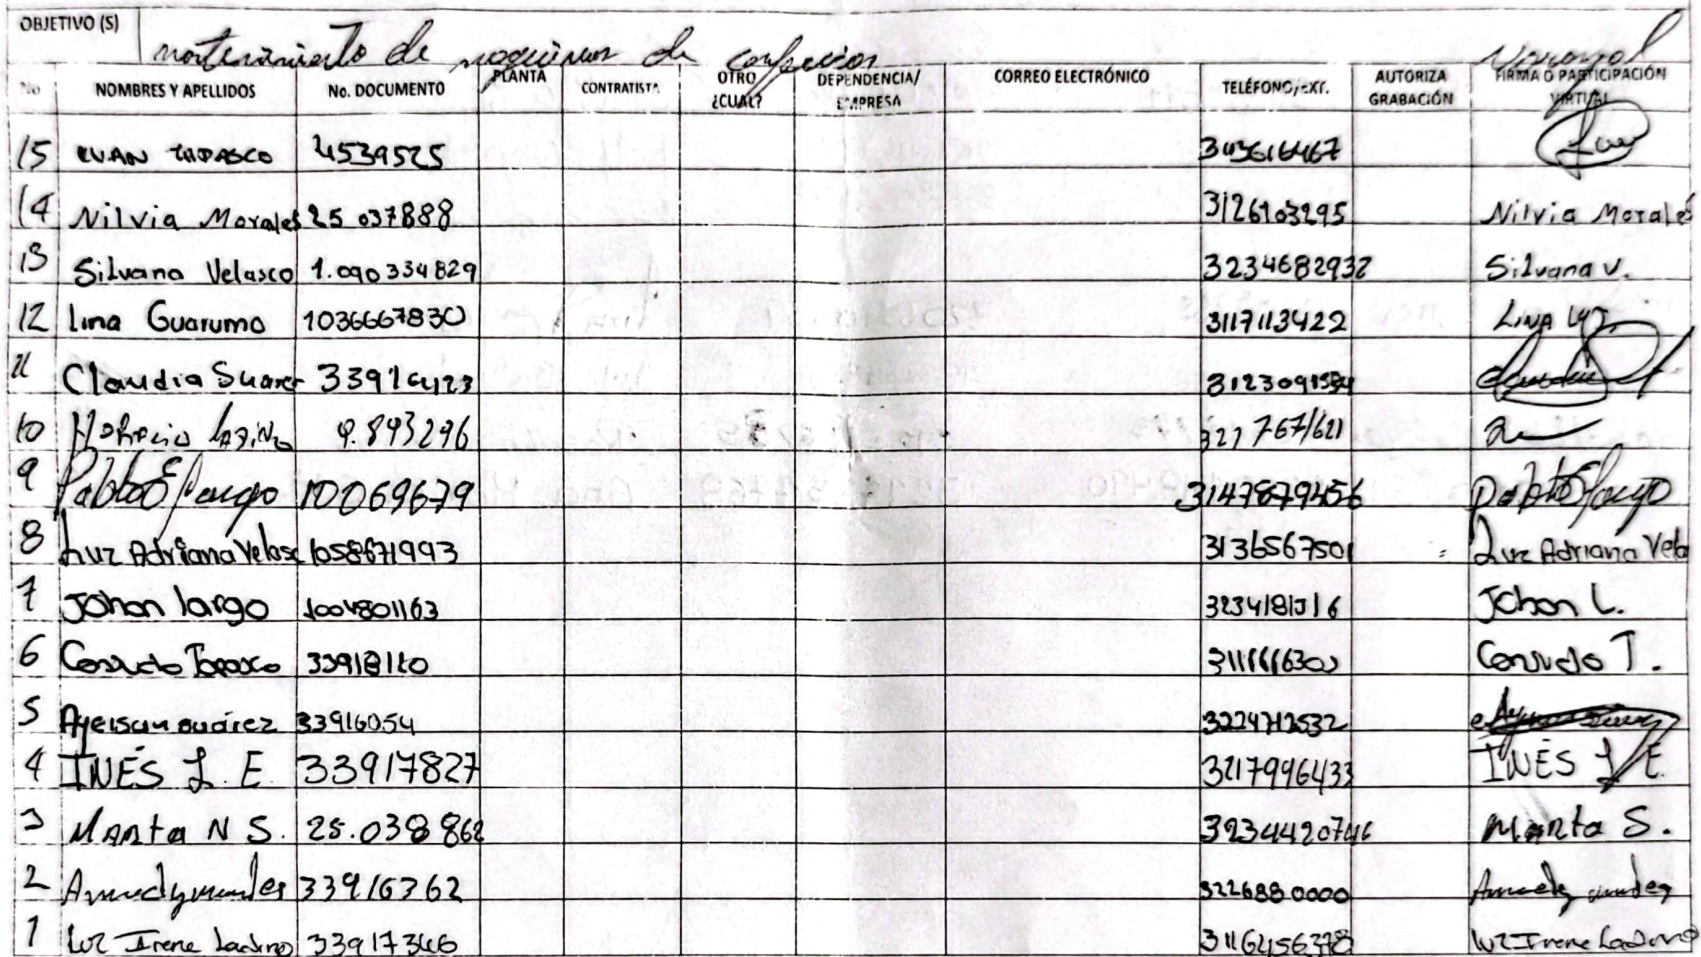 OBJETIVO (S)
mantenimiento de maquinas de confeccion
No NOMBRES Y APELLIDOS No. DOCUMENTO PLANTA CONTRATISTA OTRO ¿CUAL? DEPENDENCIA/ EMPRESA CORREO ELECTRÓNICO TELÉFONO/EXT. AUTORIZA GRABACIÓN FIRMA O PARTICIPACIÓN VIRTUAL
15 TAPASCO 4539525
14 Nilvia Morales 25.037888 Nilvia Morales
13 Silvana Velasco 1.090334829 3234682932 Silvana V.
12 Lina Guarumo 1036667830 3117113422 Lina
11 Claudia Suarez
10 Horacio Ladino 9.893296
9 Pablo E Largo 10069679 3147879456 Pablo E Largo
8 Luz Adriana Velasc 1058671993 3136567501 Luz Adriana Vela
7 Johan largo Johan L.
6 Consuelo Tapasco Consuelo T.
5 suárez 33916054 3224712532
4 INÉS L. E. 33917827 3217996433 INÉS L. E.
3 Marta N S. 25.038862 Marta S.
2 33916362 3226880000
1 Luz Irene Ladino 33917346 3116456378 Luz Irene Ladino